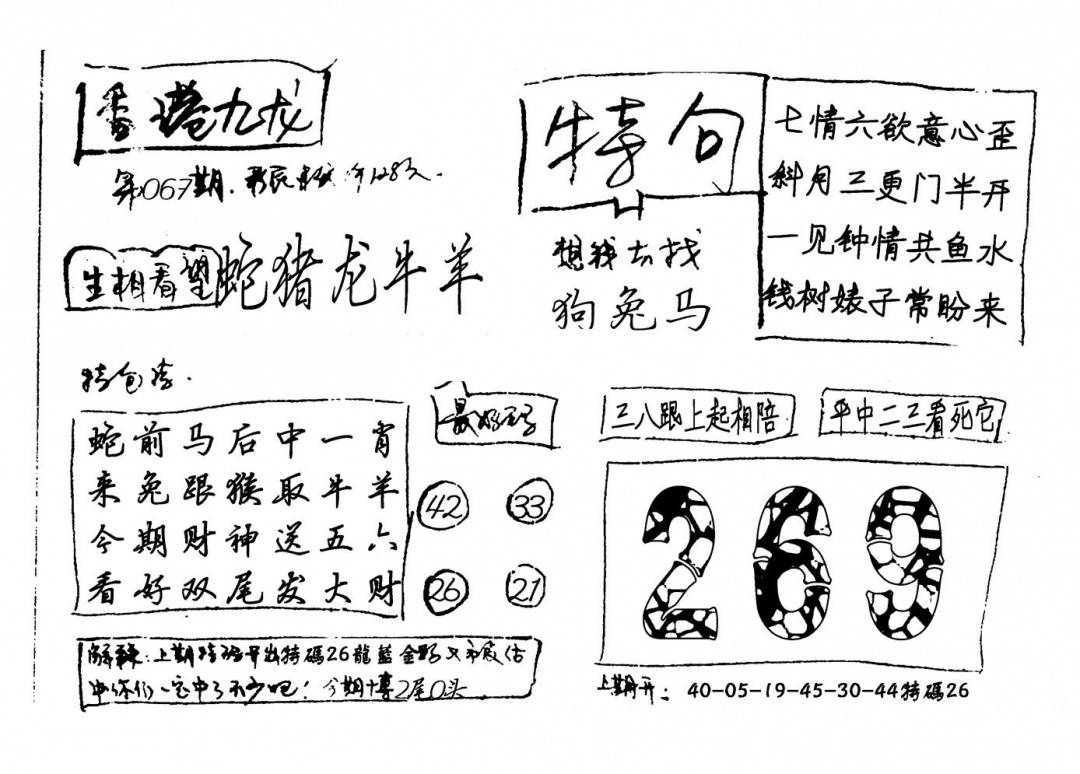 香港九龙
第067期.
生相看望 蛇猪龙牛羊
特句
七情六欲意心歪
斜月三更门半开
一见钟情共鱼水
钱树婊子常盼来
想我去找
狗兔马
特包
蛇前马后中一肖
来兔跟猴取牛羊
今期财神送五六
看好双尾发大财
42 33
26 21
三八跟上起相陪
平中二三看死它
269
上期特 开出特碼26龍藍金
中你们一定中了不少吧！今期博2尾0头
上期开：40-05-19-45-30-44特碼26